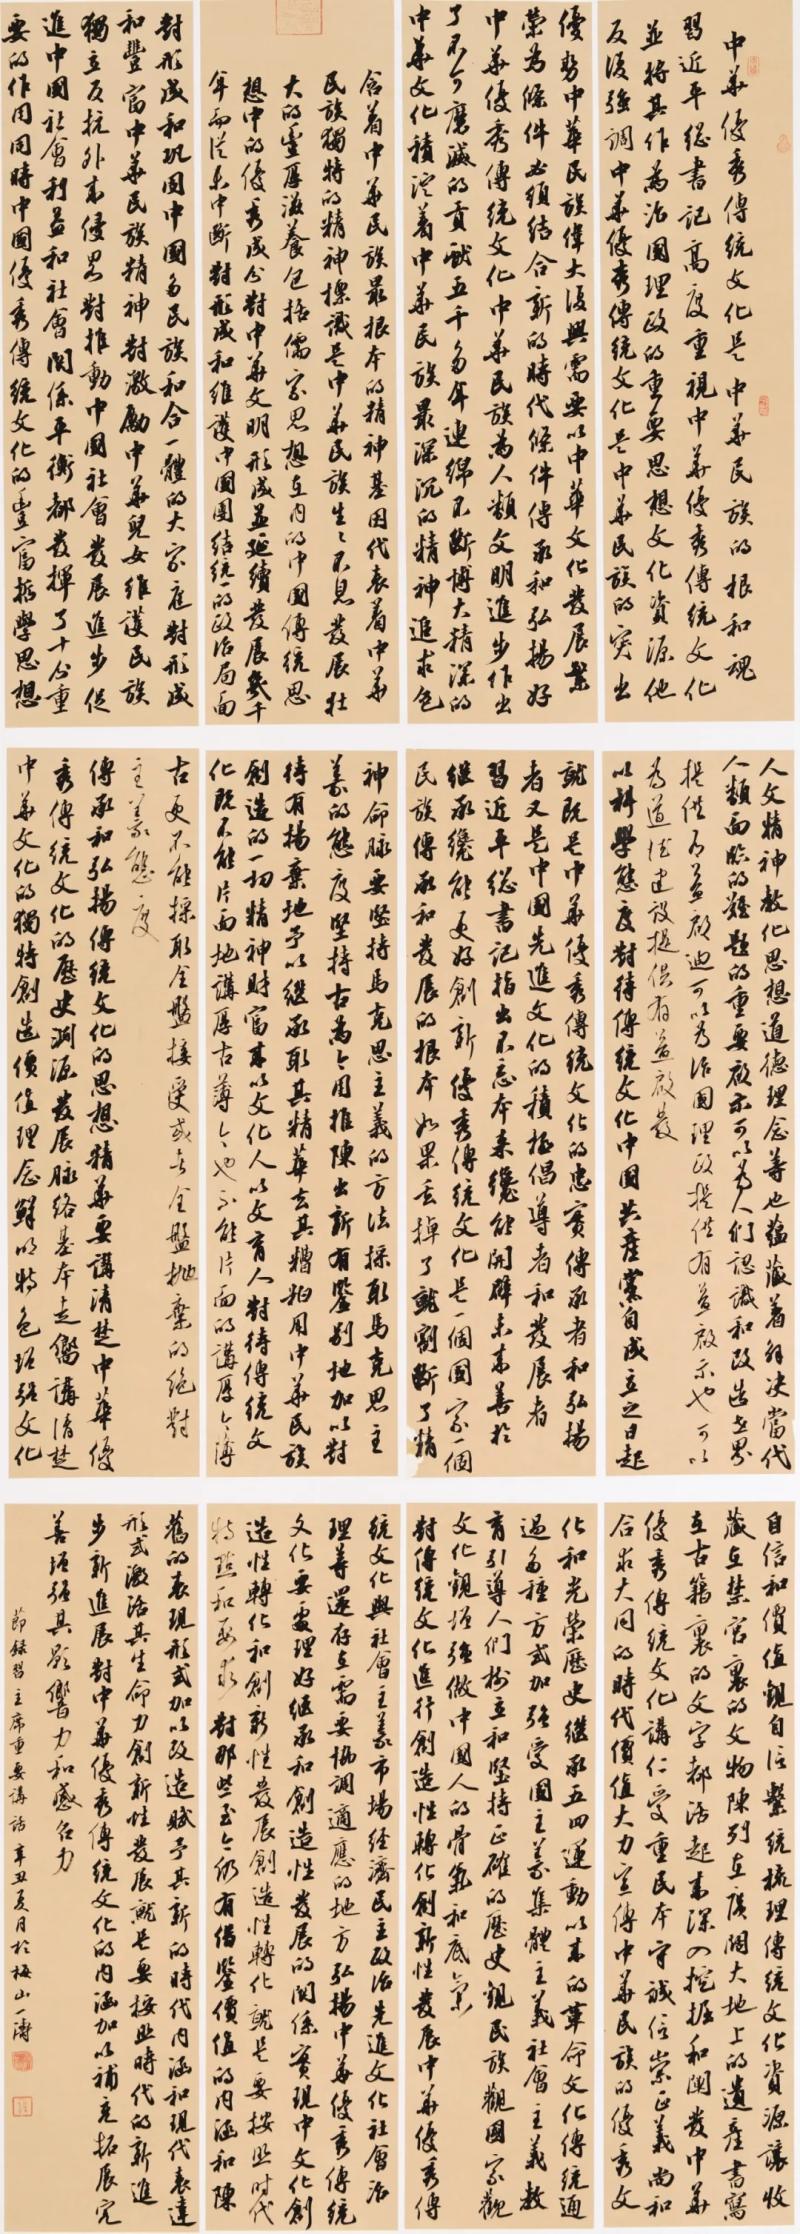 中華優秀傳統文化是中華民族的根和魂
習近平總書記高度重視中華優秀傳統文化
並將其作為治國理政的重要思想文化資源他
反復強調中華優秀傳統文化是中華民族的突出
優勢中華民族偉大復興需要以中華文化發展繁
榮為條件必須結合新的時代條件傳承和弘揚好
中華優秀傳統文化中華民族為人類文明進步作出
了不可磨滅的貢獻五千多年連綿不斷博大精深的
中華文化積淀着中華民族最深沉的精神追求包
含着中華民族最根本的精神基因代表着中華
民族獨特的精神標識是中華民族生々不息發展壯
大的豐厚滋養包括儒家思想在内的中國傳統思
想中的優秀成分對中華文明形成並延續發展幾千
年而從未中斷對形成和維護中國團結統一的政治局面
對形成和巩固中國多民族和合一體的大家庭對形成
和豐富中華民族精神對激勵中華兒女維護民族
獨立反抗外來侵略對推動中國社會發展進步促
進中國社會利益和社會關係平衡都發揮了十分重
要的作用同時中國優秀傳統文化的豐富哲學思想
人文精神教化思想道德理念等也蕴藏着解决當代
人類面臨的難題的重要啟示可以為人們認識和改造世界
提供有益啟迪可以為治國理政提供有益啟示也可以
為道德建設提供有益啟發
以科學態度對待傳統文化中國共產黨自成立之日起
就既是中華優秀傳統文化的忠實傳承者和弘揚
者又是中國先進文化的積極倡導者和發展者
習近平總書記指出不忘本來纔能開辟未來善於
继承纔能更好創新優秀傳統文化是一個國家一個
民族傳承和發展的根本如果丢掉了就割斷了精
神命脉要堅持馬克思主義的方法採取馬克思主
義的態度堅持古為今用推陳出新有鑒别地加以對
待有揚棄地予以继承取其精華去其糟粕用中華民族
創造的一切精神財富來以文化人以文育人對待傳統文
化既不能片面地講厚古薄今也不能片面的講厚今薄
古更不能採取全盤接受或者全盤抛棄的絶對
主義態度
傳承和弘揚傳統文化的思想精華要講清楚中華優
秀傳統文化的歷史淵源發展脉絡基本走嚮講清楚
中華文化的獨特創造價值理念鮮明特色增強文化
自信和價值觀自信繫統梳理傳統文化資源讓收
藏在禁宫裏的文物陳列在廣闊大地上的遺產書寫
在古籍裏的文字都活起來深入挖掘和闡發中華
優秀傳統文化講仁愛重民本守誠信崇正義尚和
合求大同的時代價值大力宣傳中華民族的優秀文
化和光榮歷史继承五四運動以來的革命文化傳統通
過多種方式加強愛國主義集體主義社會主義教
育引導人們樹立和堅持正確的歷史觀民族觀國家觀
文化觀增強做中國人的骨氣和底氣
對傳統文化進行創造性轉化創新性發展中華優秀傳
統文化與社會主義市場经濟民主政治先進文化社會治
理等還存在需要協調適應的地方弘揚中華優秀傳統
文化要處理好继承和創造性發展的關係實現中文化創
造性轉化和創新性發展創造性轉化就是要按照时代
特點和要求對那些至今仍有借鑒價值的内涵和陳
舊的表現形式加以改造賦予其新的時代内涵和現代表達
形式激活其生命力創新性發展就是要按照時代的新進
步新進展對中華優秀傳統文化的内涵加以補充拓展完
善增強其影響力和感召力
節録習主席重要講話辛丑夏月於梅山一濤